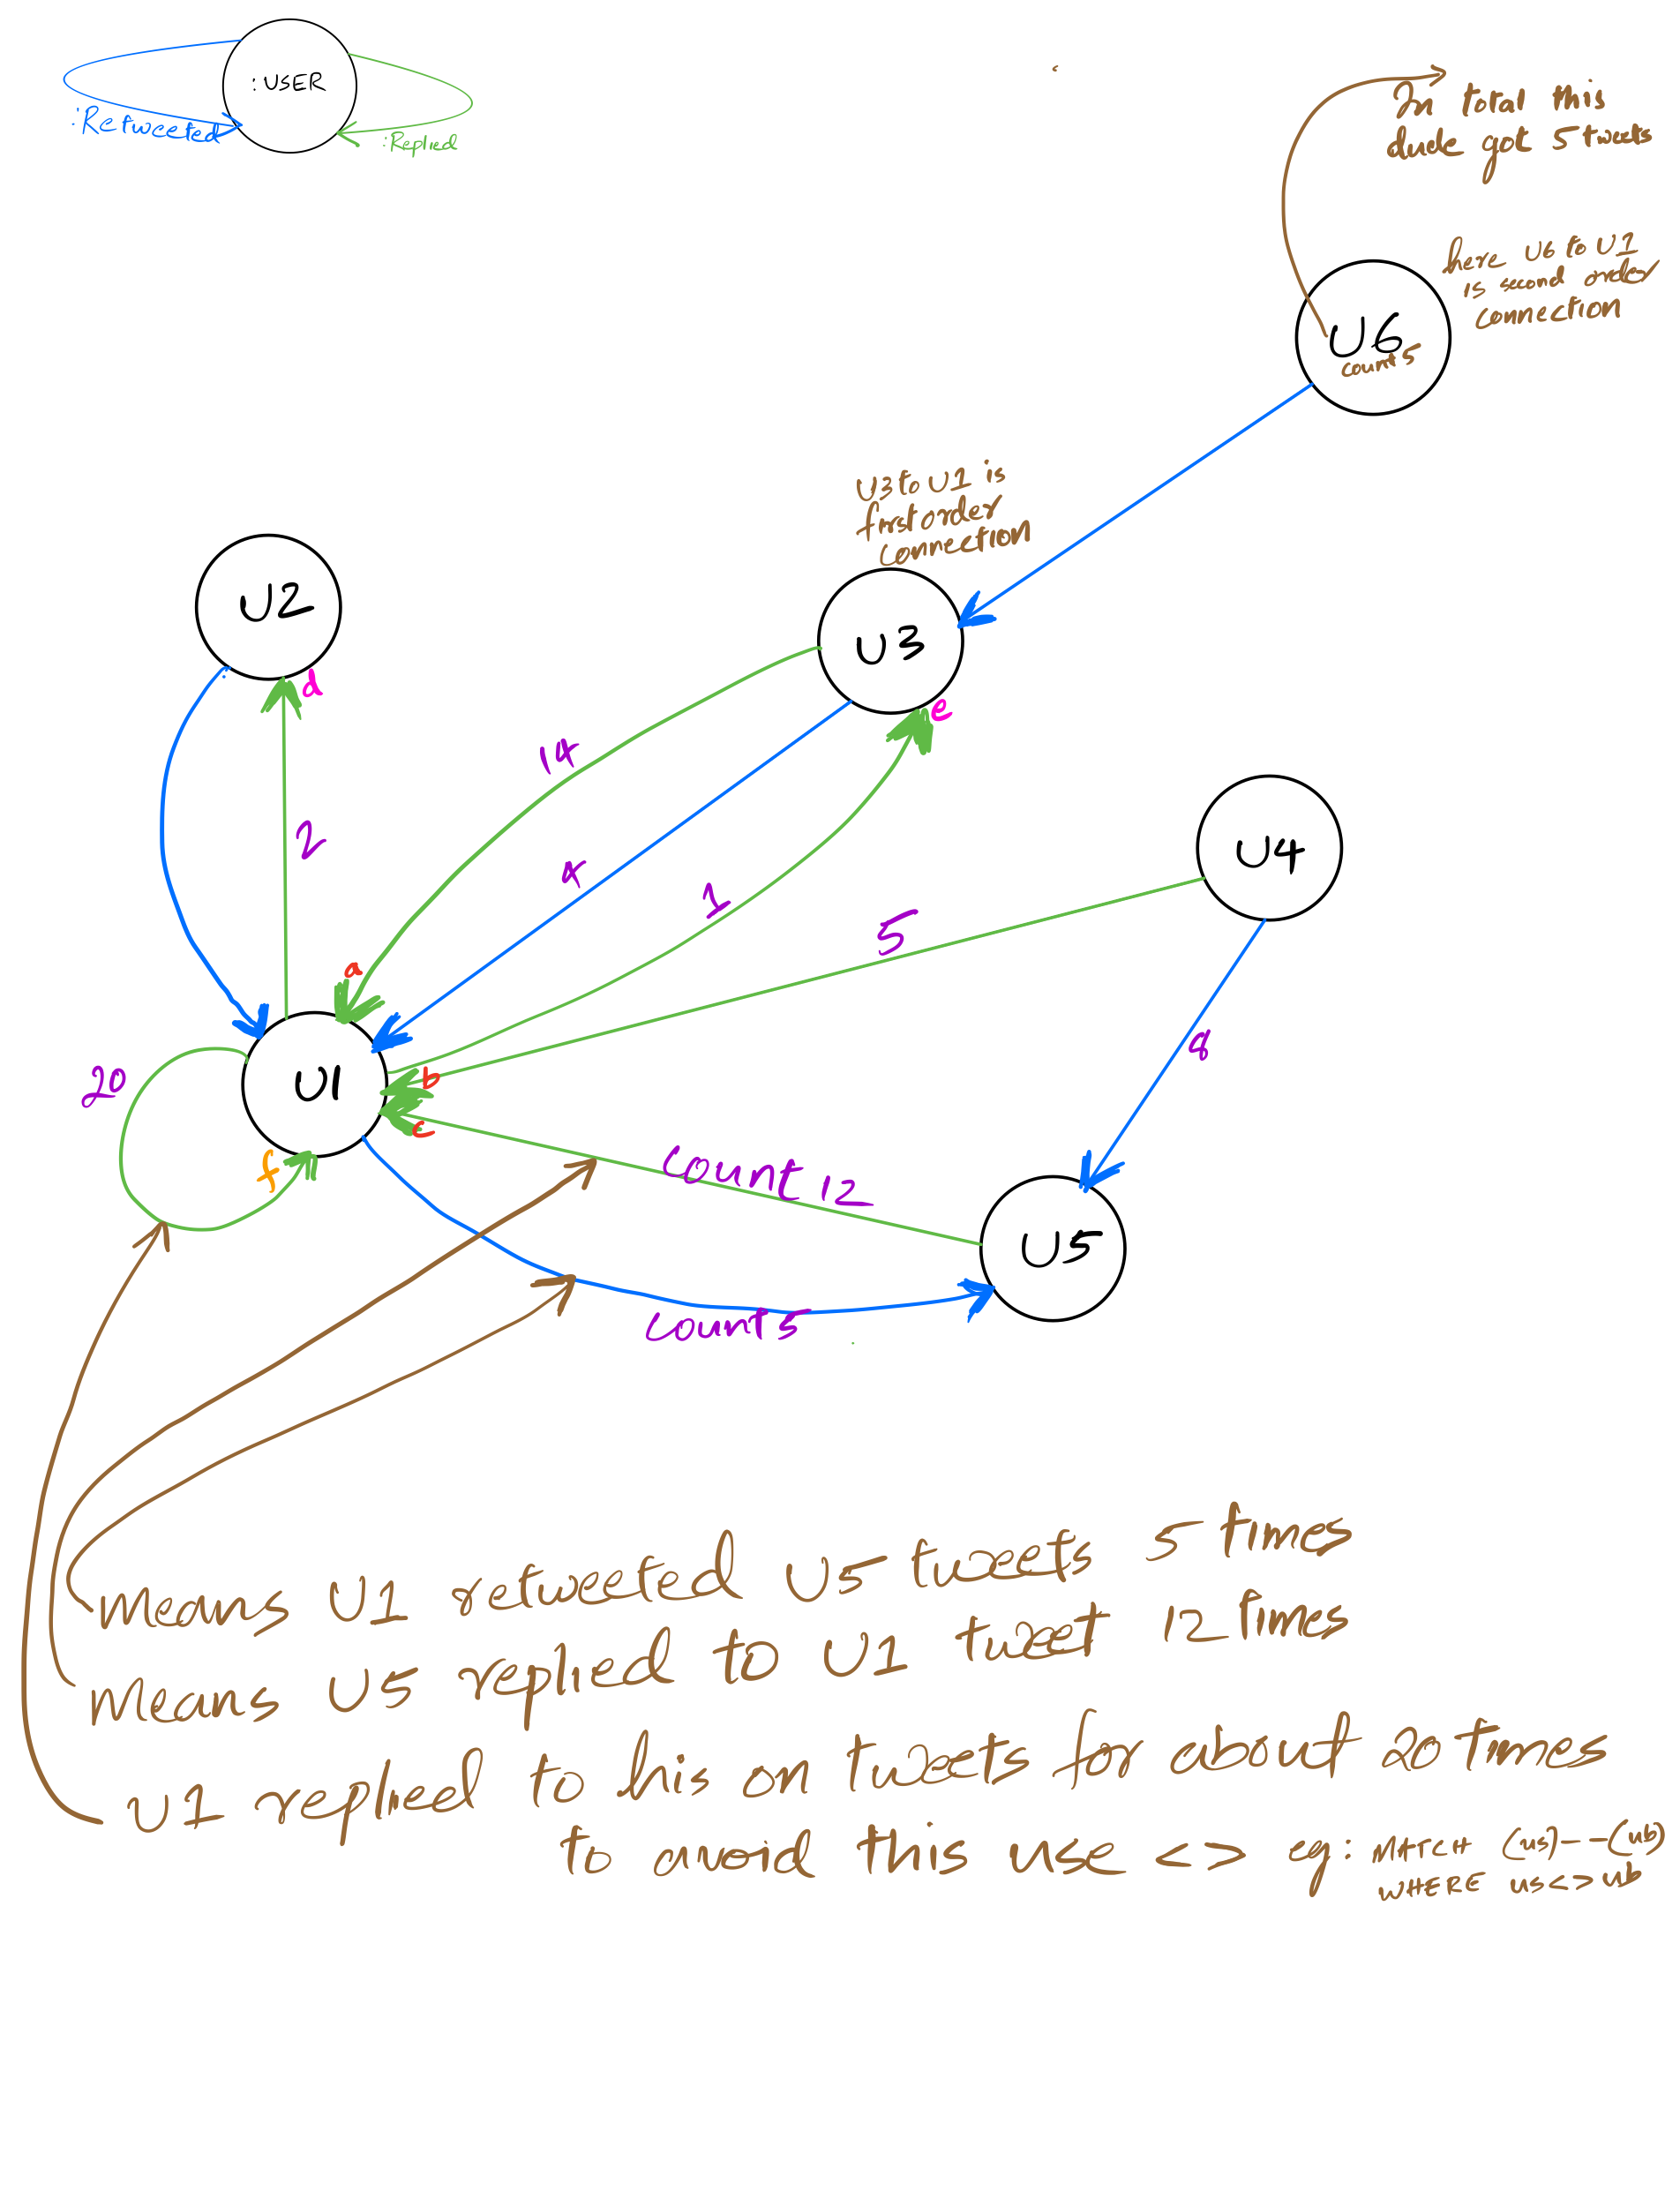 :USER
:Retweeted
:Replied
In total this
dude got 5 tweets
here U6 to U1
is second order
connection
U6
count 5
U3 to U1 is
first order
connection
U2
U3
d
e
14
2
4
1
U4
5
a
4
20
U1
b
c
f
count 12
U5
count 5
Means U1 retweeted U5 tweets 5 times
Means U5 replied to U1 tweet 12 times
U1 replied to his on tweets for about 20 times
to avoid this use <> eg: MATCH (us)--(ub)
WHERE us<>ub